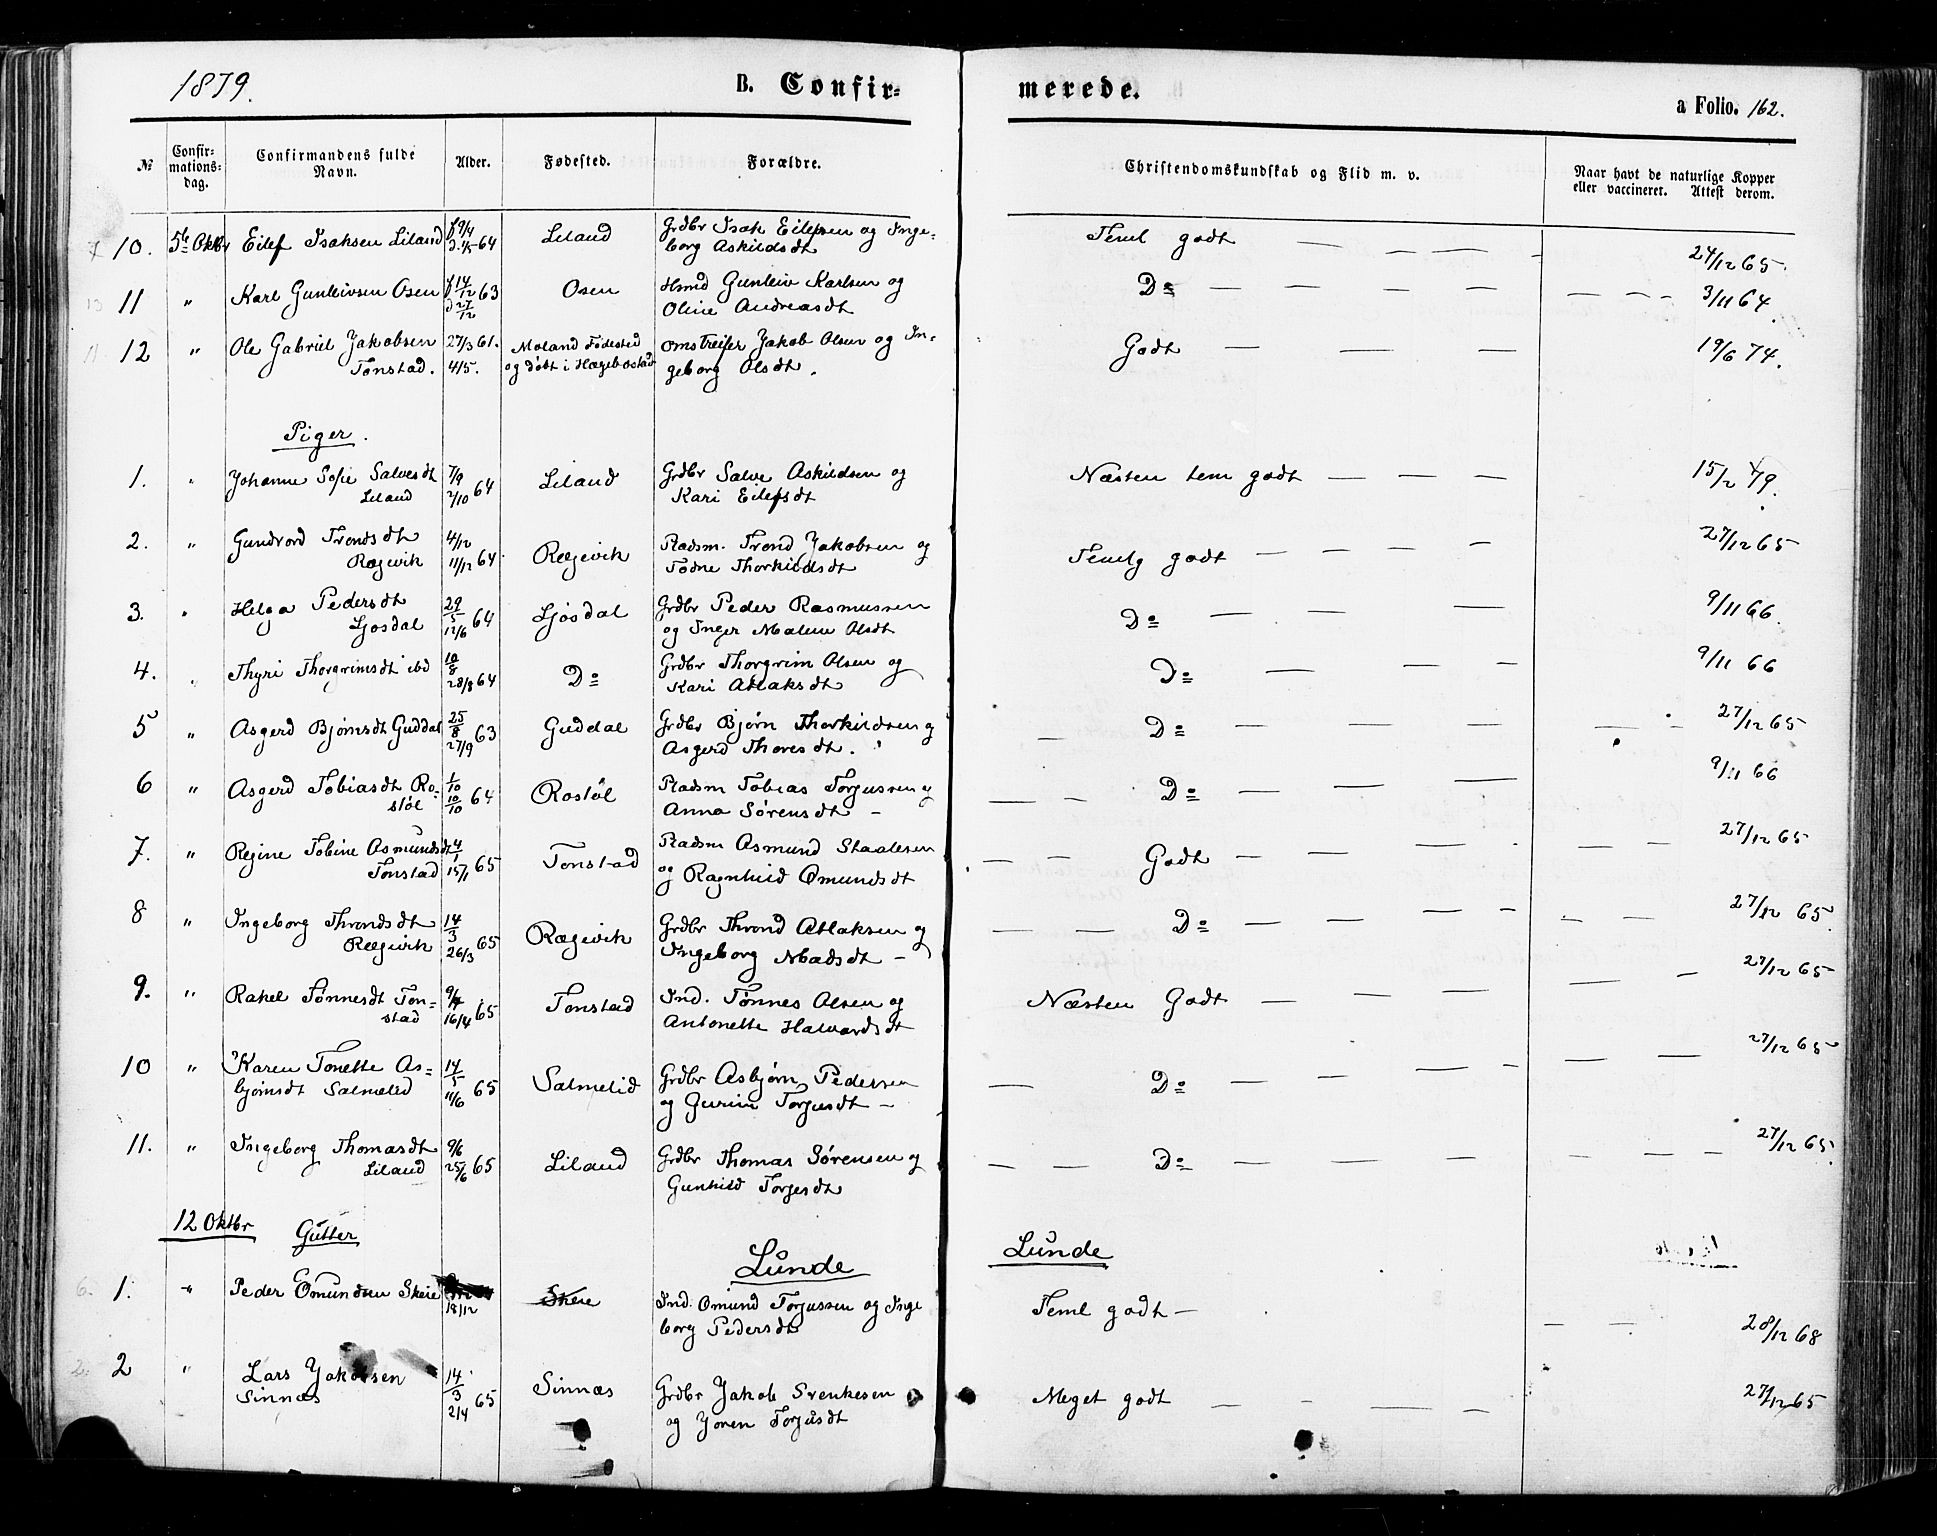 1879.
B. Confir-
merede.
a Folio. 162.
№
Confir-
mations-
dag.
Confirmandens fulde
Navn.
Alder.
Fødested.
Forældre.
Christendomskundskab og Flid m. v.
Naar havt de naturlige Kopper
eller vaccineret. Attest derom.
10. 5te Oktbr Eilef Isaksen Liland f9/4 64 Liland Grdbr Isak Eilefsen og Inge-
borg Askildsdt
Teml godt — — — — 24/12 65.
11 " Karl Gunleivsen Osen f14/12 63 d27/12 Osen Hsmd Gunleiv Karlsen og
Oline Andreasdt
Do — — — — — — — 3/11 64.
12 " Ole Gabriel Jakobsen 27/3 61. Moland Fødested omstreifer Jakob Olsen og In-
Tonstad. 4/5. og døbt i Hægebostad geborg Olsdt.
Godt — — — — 19/6 74.
Piger.
1. " Johanne Sofie Salvesdt 7/9 64 Liland Grdbr Salve Askildsen og
Liland 2/10 Kari Eilefsdt
Næsten tem godt — — — — 15/2 79.
2. " Gundvord Trondsdt 4/12 64 Regevik Pladsm. Trond Jakobsen og
Regevik 11/12 Todne Thorkildsdt
Temlg godt — — — — 27/12 65
3. " Helga Pedersdt 29/5 64 Ljosdal Grdbr Peder Rasmussen
Ljosdal 12/6 og Inger Malene Olsdt
Do — — — 9/11 66.
4. " Thyri Thorgrimsdt ibd 10/8 64 Do Grdbr Thorgrim Olsen og
28/8 Kari Atlaksdt
Do — — — 9/11 66
5 " Asgerd Bjørnsdt Guddal 25/8 63 Guddal Grdbr Bjørn Thorkildsen og
27/9 Asgerd Thoresdt.
— Do — — — — — 27/12 65
6 " Asgerd Tobiasdt Ro- 1/10 64 Rostøl Pladsm Tobias Torjussen og
støl 10/10 Anna Sørensdt —
— — Do — — — 9/11 66
7. " Regine Tobine Asmundsdt 4/1 65 Tonstad Pladsm Asmund Staalesen
Tonstad 15/1 og Ragnhild Omundsdt
— — Godt — — — — — — 27/12 65
8 " Ingeborg Throndsdt 14/3 65 Regevik Grdbr Thrond Atlaksen og
Regevik 26/3 Ingeborg Madsdt —
— — Do — — — — — — 27/12 65
9. " Rakel Tønnesdt Ton- 9/4 65 Tonstad Ind. Tønnes Olsen og
stad 16/4 Antonette Halvardsdt
Næsten Godt — — — — — — 27/12 65
10 " Karen Tonette As- 14/5 65 Salmelid Grdbr Asbjørn Pedersen
bjørnsdt Salmelid 11/6 og Gurine Torjusdt —
— Do — — — — — — 27/12 65
11. " Ingeborg Thomasdt 9/6 65 Liland Grdbr Thomas Sørensen og
Liland 25/6 Gunhild Torjesdt
— — Do — — — — — — — 27/12 65
12 Oktbr Gutter
Lunde
Lunde
1. " Peder Omundsen Skeie 18/12 Skeie Ind. Omund Torjussen og Inge
borg Pedersdt
Teml godt — — — 28/12 68
2 " Lars Jakobsen 14/3 65 Sinnæs Grdbr Jakob Svenkesen
Sinnæs 2/4 og Joren Torjusdt
Meget godt — — — — — 27/12 65